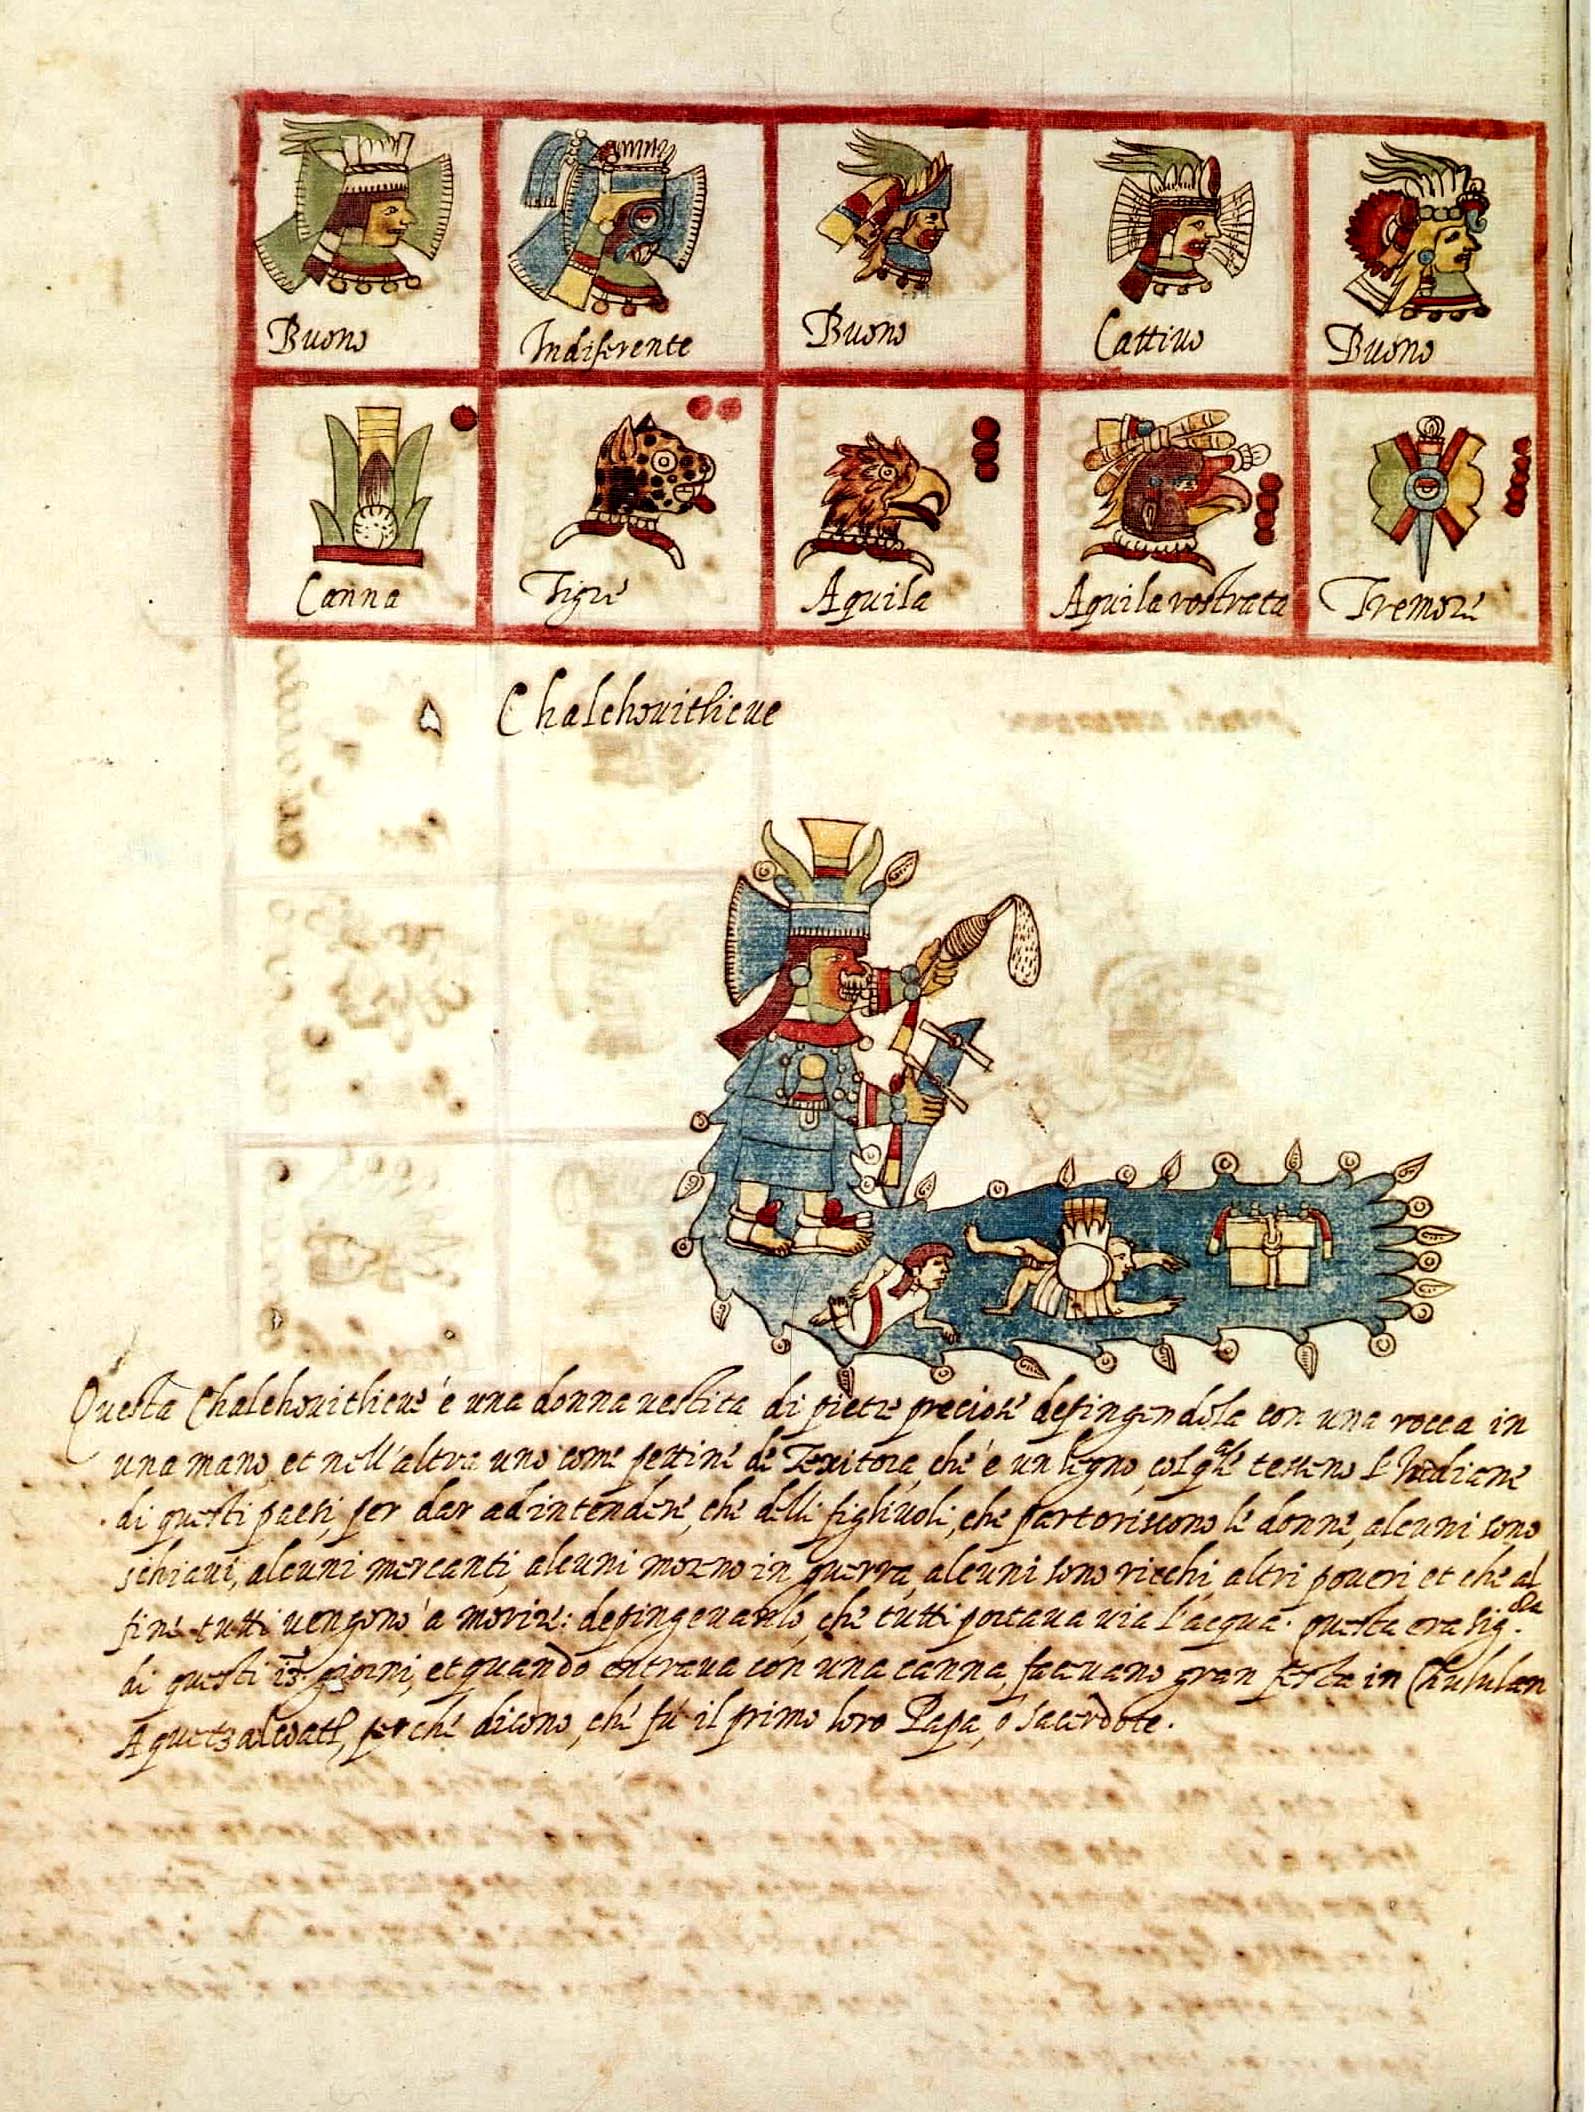 Buono Indiferente Buono Cattiuo Buono
Canna Tigre Aquila Aquila rostrata Tremore
Chalchouitlicue
Questa Chalchouitlicue é una donna uestita di pietre preciose depingendola con una rocca in
una mano, et nell'altra uno come pettine de Texitora, ché é un legno, col qle tesseno l'Indiane
di questi paesi, per dar ad intendere, che delli figliuoli, che partoriscono le donne, alcuni sono
schiaui, alcuni mercanti, alcuni moreno in guerra, alcuni sono ricchi altri poueri et che al
fine tutti uengono á morire: depingeuanlo, che tutti portaua uia l'acqua. questa era sig.ora
di questi 13 giorni, et quando entraua con una canna, faceuano gran festa in Chululan
A quetzalcoatl, perché dicono, ché fú il primo loro Papa, ó sacerdote.